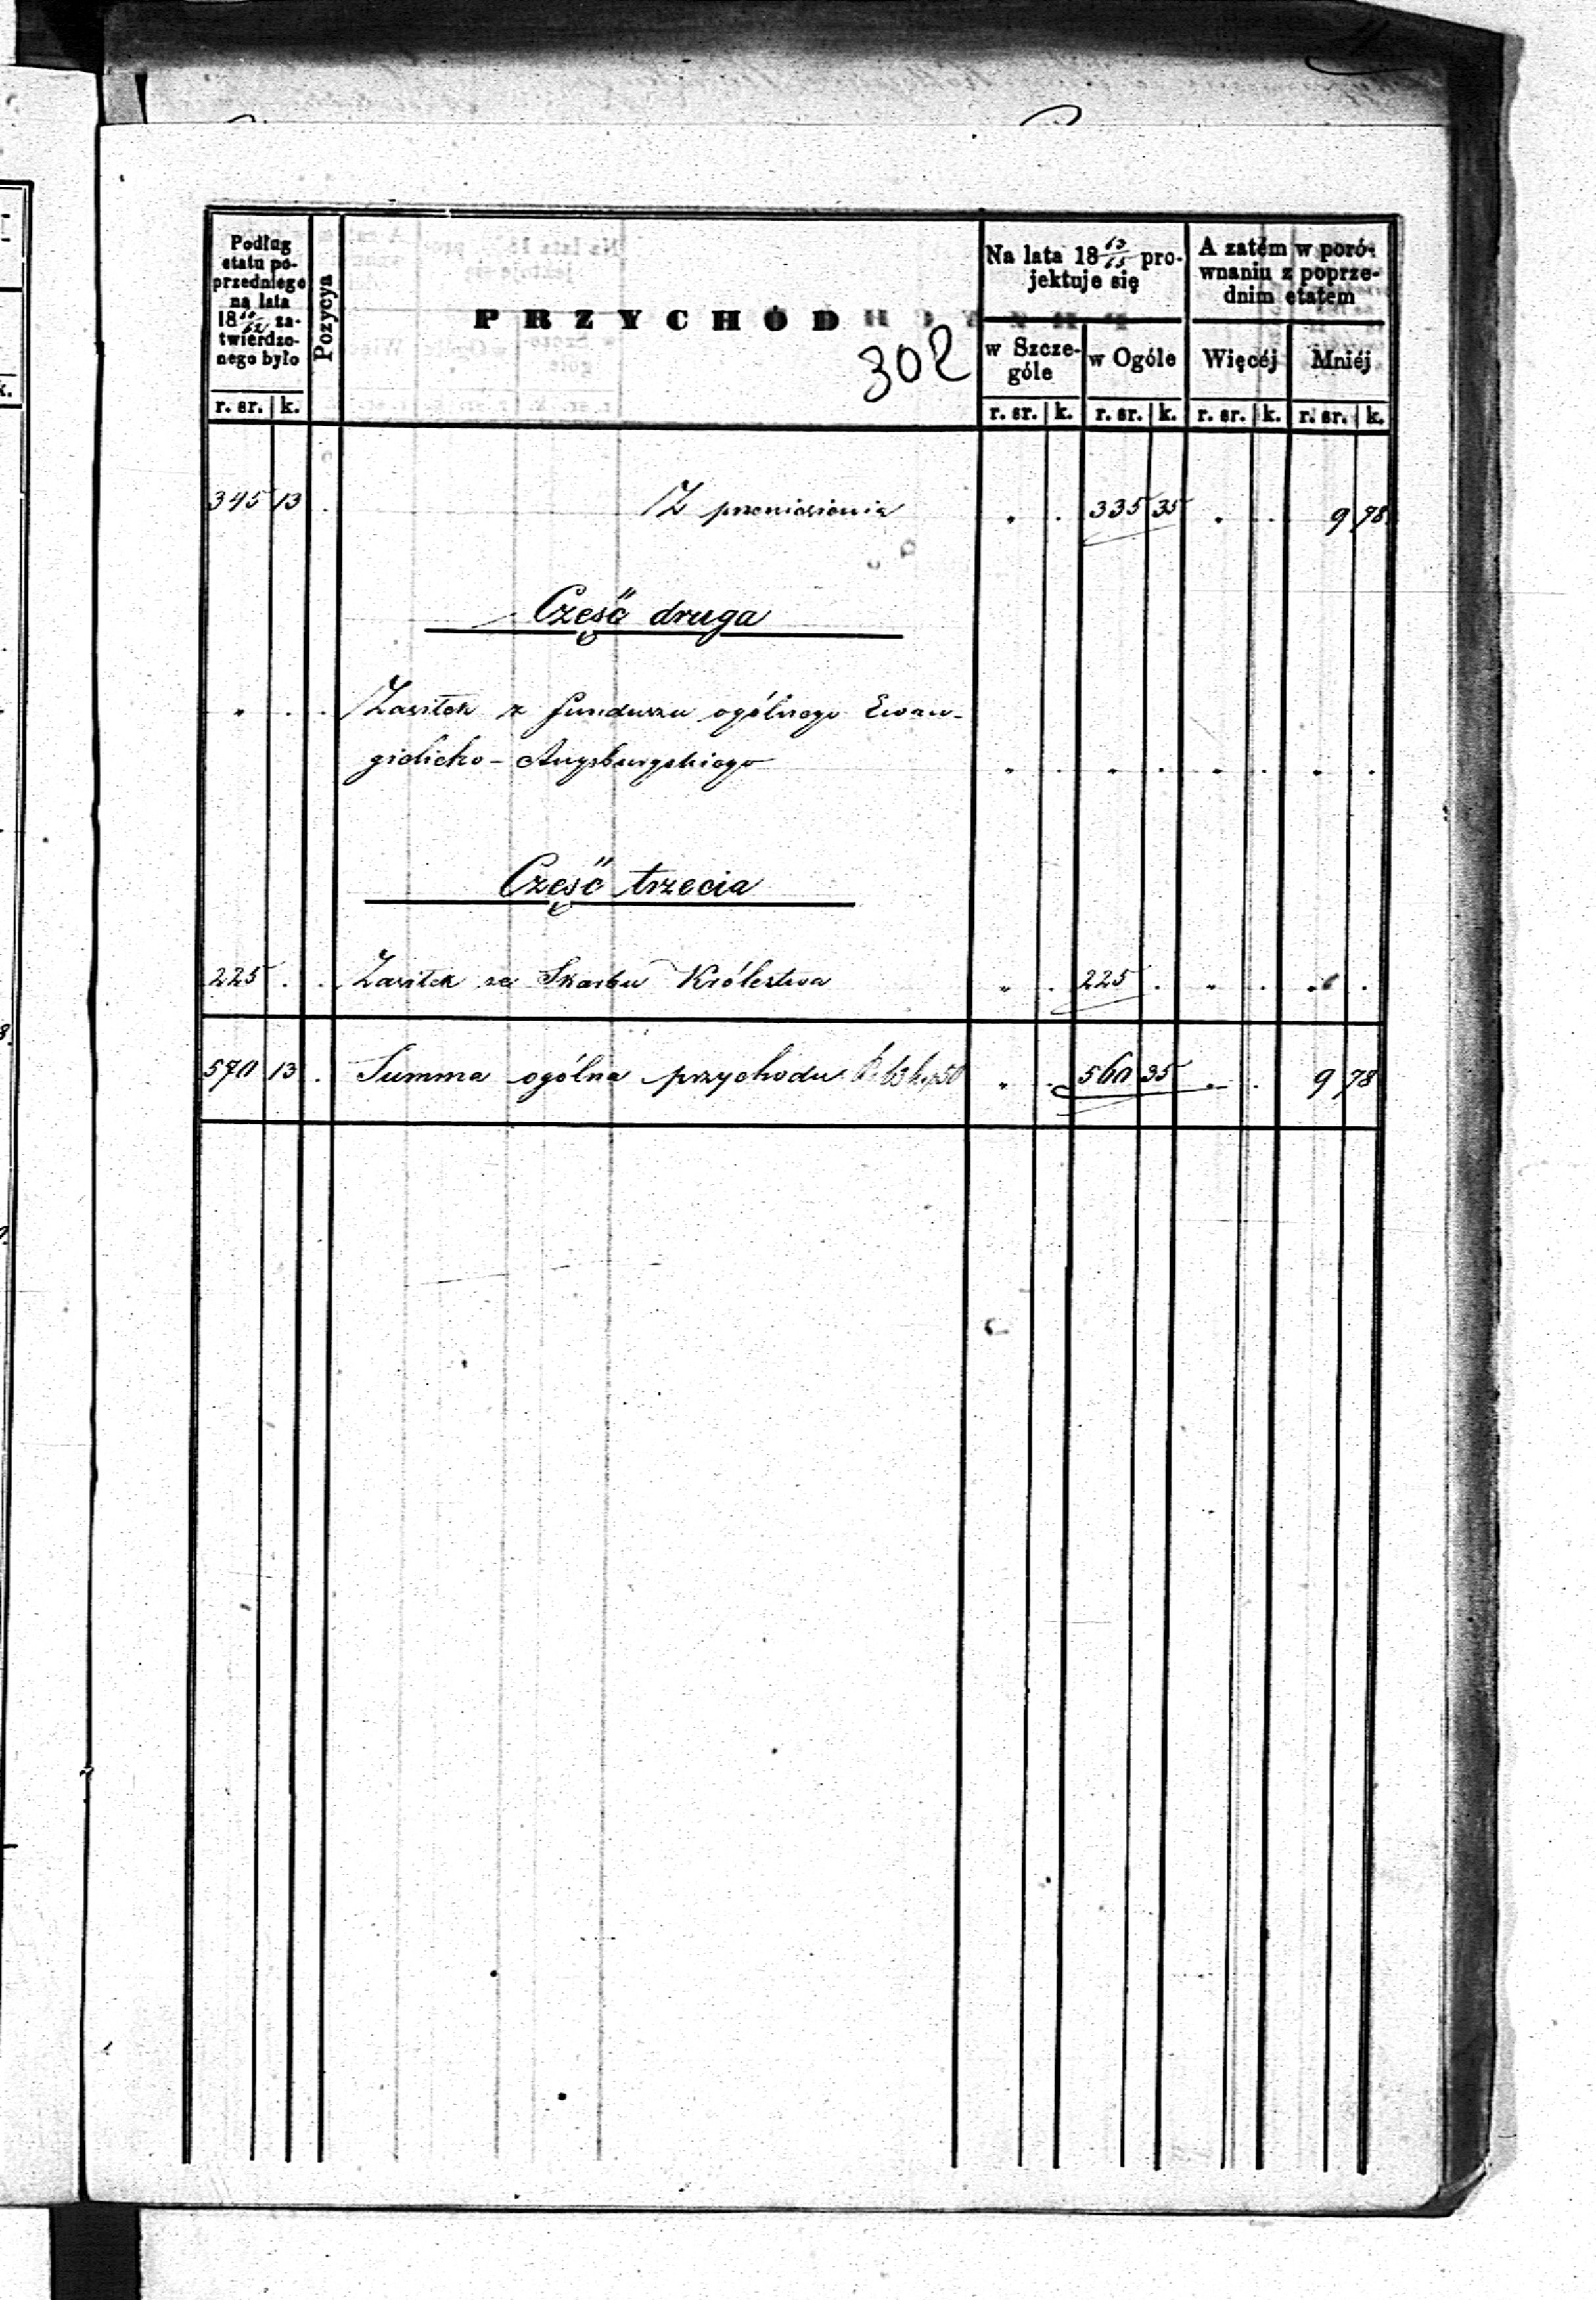 Podług etatu poprzedniego na lata 18 60/62 zatwierdzonego było
Pozycya
PRZYCHÓD
302
Na lata 18 63/65 projektuje się
A zatém w porównaniu z poprzednim etatem
w Szczególe
w Ogóle
Więcéj
Mniéj
r. sr. k. r. sr. k. r. sr. k. r. sr. k. r. sr. k.
345 13 . Z przeniesienia " . 335 35 " . 9 78
Część druga
" . . Zasiłek z funduszu ogólnego Ewan-
gielicko-Augsburgskiego " . " . " . " .
Część trzecia
225 . . Zasiłek ze Skarbu Królestwa " . 225 . " . " .
570 13 . Summa ogólna przychodu " . 560 35 " . 9 78